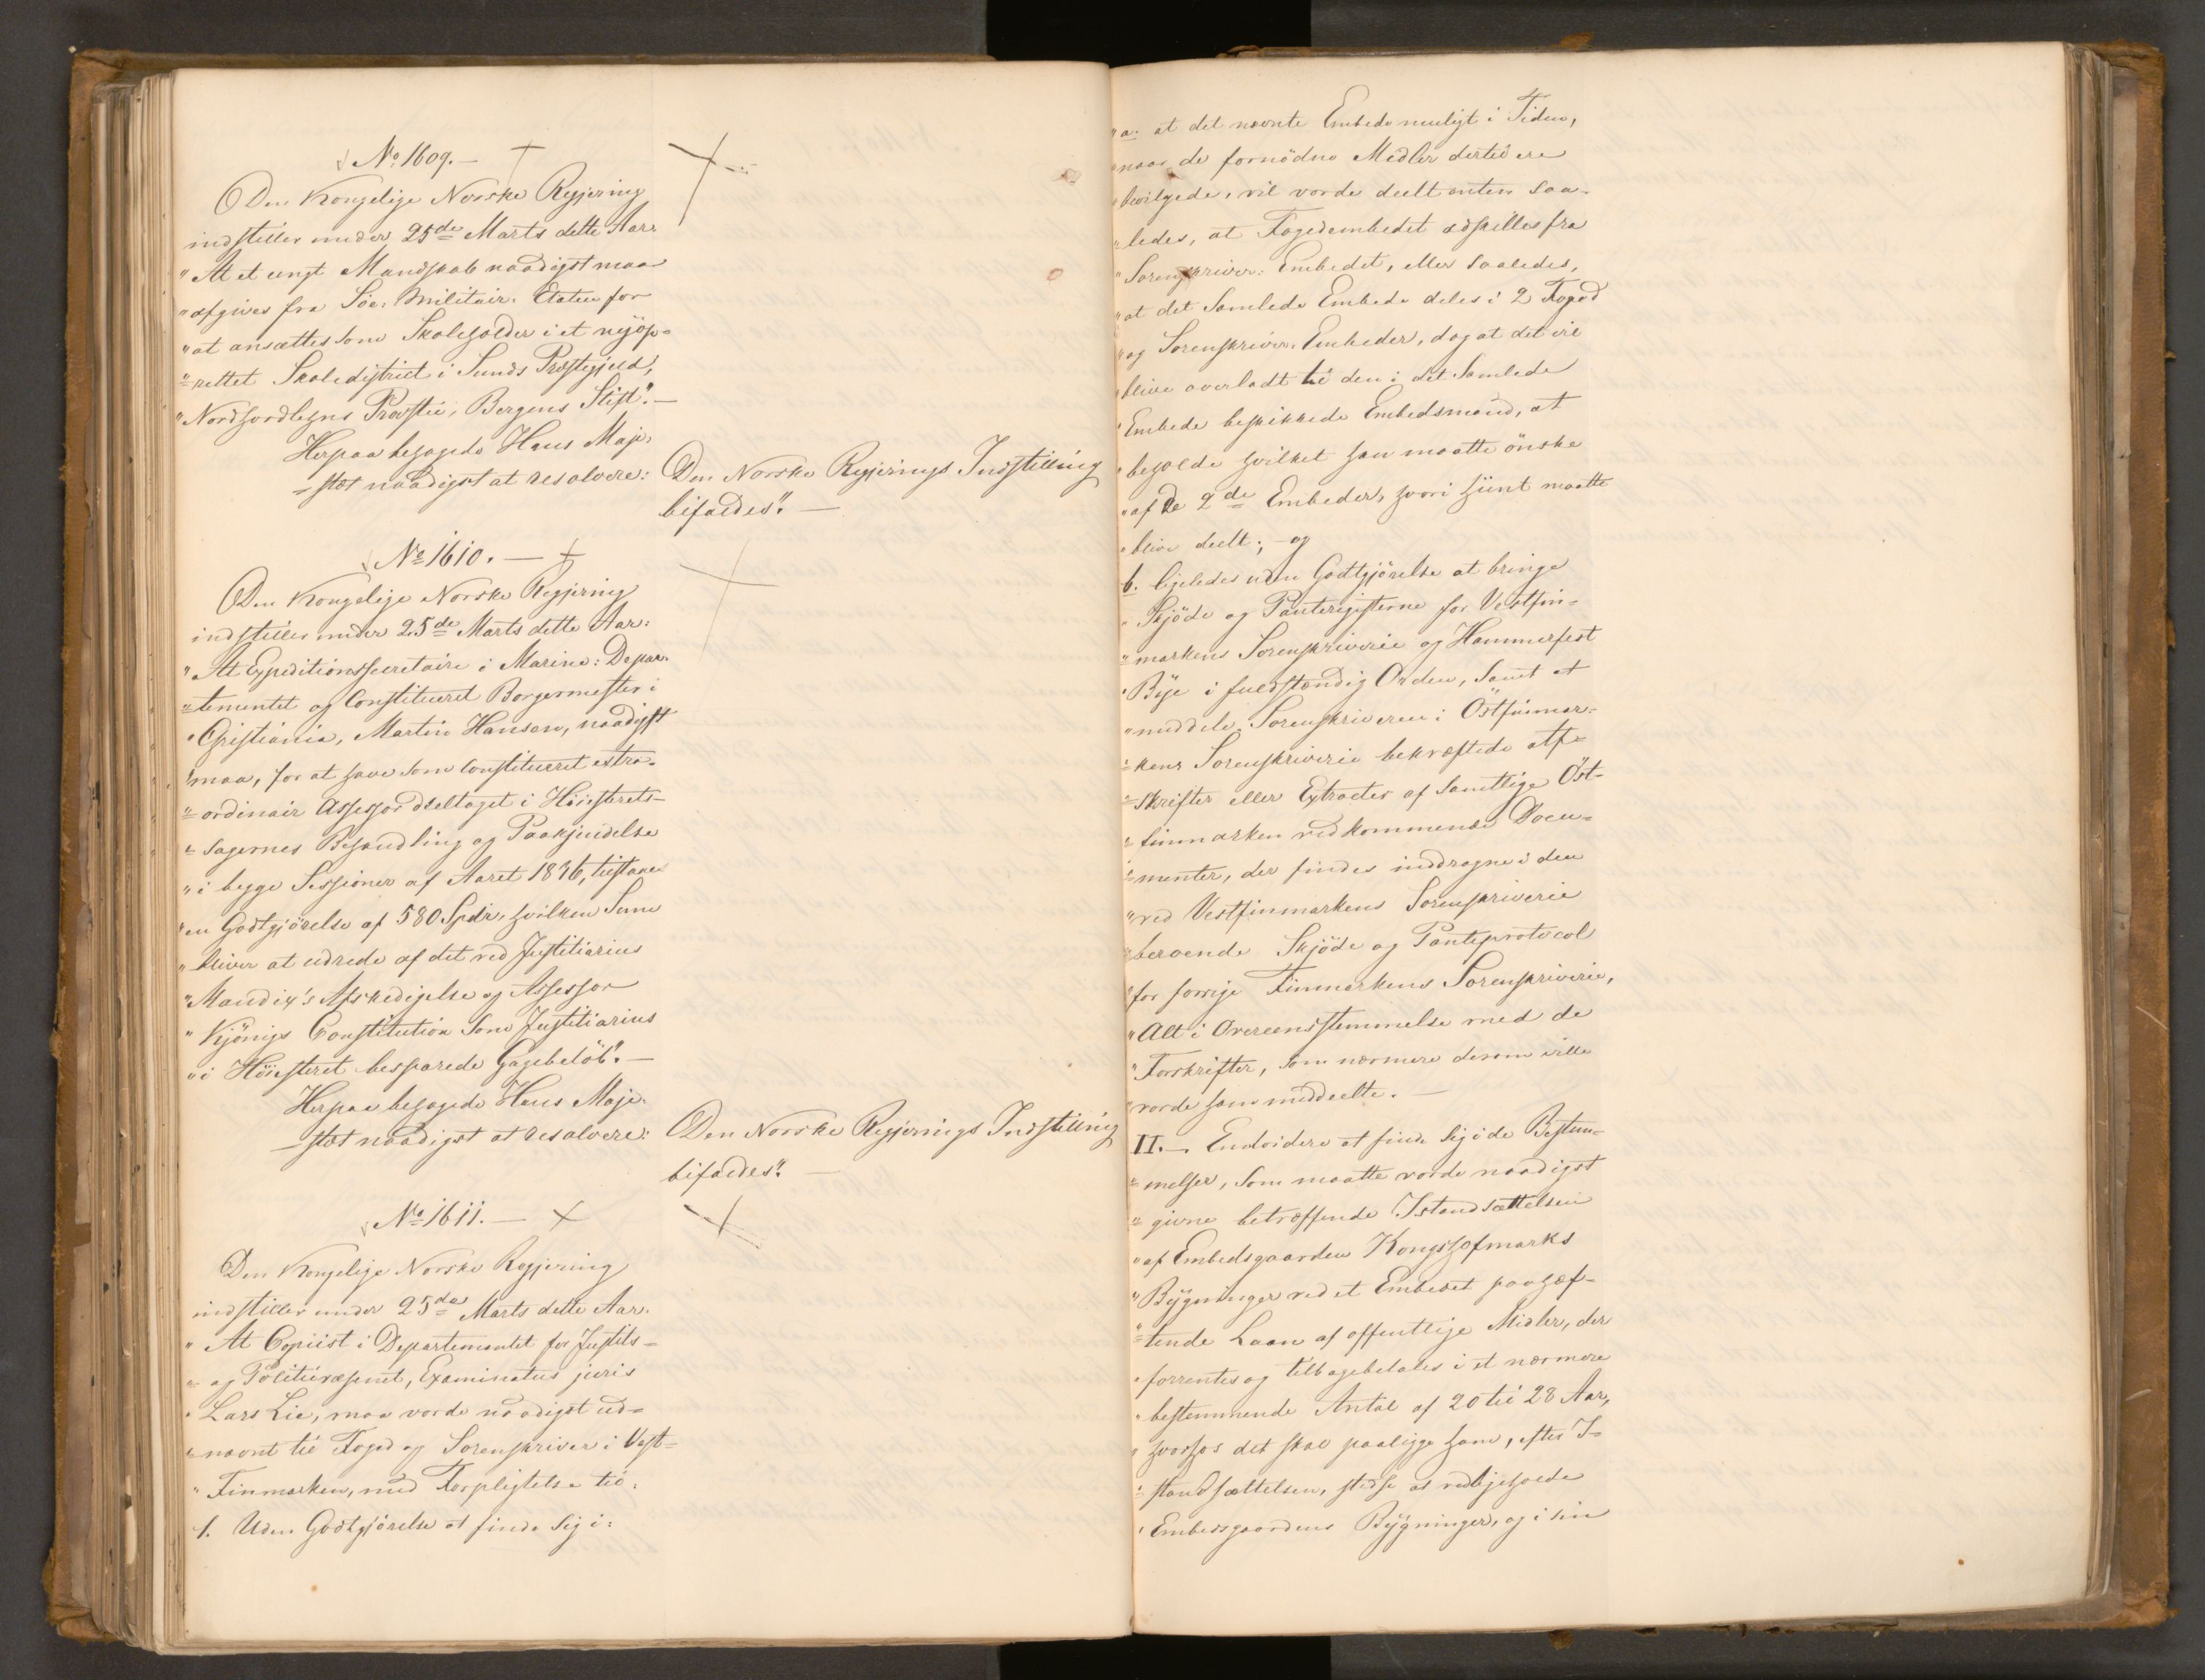 No 1609.–
Den Kongelige Norske Regjering
indstiller under 25de Marts dette Aar:
"At et ungt Mandskab naadigst maa
"afgives fra Söe-Militair-Etaten for
"at ansættes som Skoleholder i et nyöp-
"rettet Skoledistrict i Sunds Præstegjeld,
"Nordhordlehns Provstie, Bergens Stift".–
Herpaa behagede Hans Maje-
stæt naadigst at resolvere:
Den Norske Regjerings Indstilling
bifaldes".–
No 1610.–
Den Kongelige Norske Regjering
indstiller under 25de Marts dette Aar:
"At Expeditionssecretaire i Marine-Depar-
"tementet og Constitueret Borgermester i
"Christiania, Martin Hansen, naadigst
"maa, for at have som Constitueret extra-
"ordinair Assessor deeltaget i Höiesterets-
"sagernes Behandling og Paakjendelse
"i begge Sessioner af Aaret 1836, tilstaaes
"en Godtgjörelse af 580 Spdr, hvilken Sum
"bliver at udrede af det ved Justitiarius
"Mandix's Afskedigelse og Assessor
"Kjönigs Constitution som Justitiarius
"i Höiesteret besparede Gagebelöb".–
Herpaa behagede Hans Maje-
stæt naadigst at resolvere:
Den Norske Regjerings Indstilling
bifaldes".–
No 1611.–
Den Kongelige Norske Regjering
indstiller under 25de Marts dette Aar:
"At Copiist i Departementet for Justits-
"og Politievæsenet, Examinatus juris
"Lars Lie, maa vorde naadigst ud-
"nævnt til Foged og Sorenskriver i Vest-
"Finmarken, med Forpligtelse til:
1. Uden Godtgjörelse at finde sig i:
"a. at det nævnte Embede muligt i Tiden,
"naar de fornödne Midler dertil ere
"bevilgede, vil vorde deelt enten saa-
"ledes, at Fogedembedet adskilles fra
"Sorenskriver-Embedet, eller saaledes,
"at det samlede Embede deles i 2 Foged
"og Sorenskriver-Embeder, dog at det vil
"blive overladt til den i det samlede
"Embede beskikkede Embedsmand, at
"beholde hvilket han maatte önske
"af de 2de Embeder, hvori hiint maatte
"blive deelt; – og
b. ligeledes uden Godtgjörelse at bringe
"Skjöde og Panteregisterne for Vestfin-
"markens Sorenskriverie og Hammerfest
"Bye i fuldstændig Orden, samt at
"meddele Sorenskriveren i Östfinmar-
"kens Sorenskriverie bekræftede Af-
"skrifter eller Extracter af samtlige Öst-
"finmarken vedkommende Docu-
"menter, der findes inddragne i den
"ved Vestfinmarkens Sorenskriverie
"beroende Skjöde og Panteprotocol
"for forrige Finmarkens Sorenskriverie,
"Alt i Overeensstemmelse med de
"Forskrifter, som nærmere derom ville
"vorde ham meddeelte.–
II.– Endvidere at finde sig i de Bestem-
"melser, som maatte vorde naadigst
"givne betræffende Istandsættelsen
"af Embedsgaarden Kongshofmarks
"Bygninger ved et Embedet paahæf-
"tende Laan af offentlige Midler, der
"forrentes og tilbagebetales i et nærmere
"bestemmende Antal af 20 til 28 Aar,
"hvorhos det skal paaligge ham, efter I-
"standsættelsen, stedse at vedligeholde
"Embedsgaardens Bygninger, og i sin